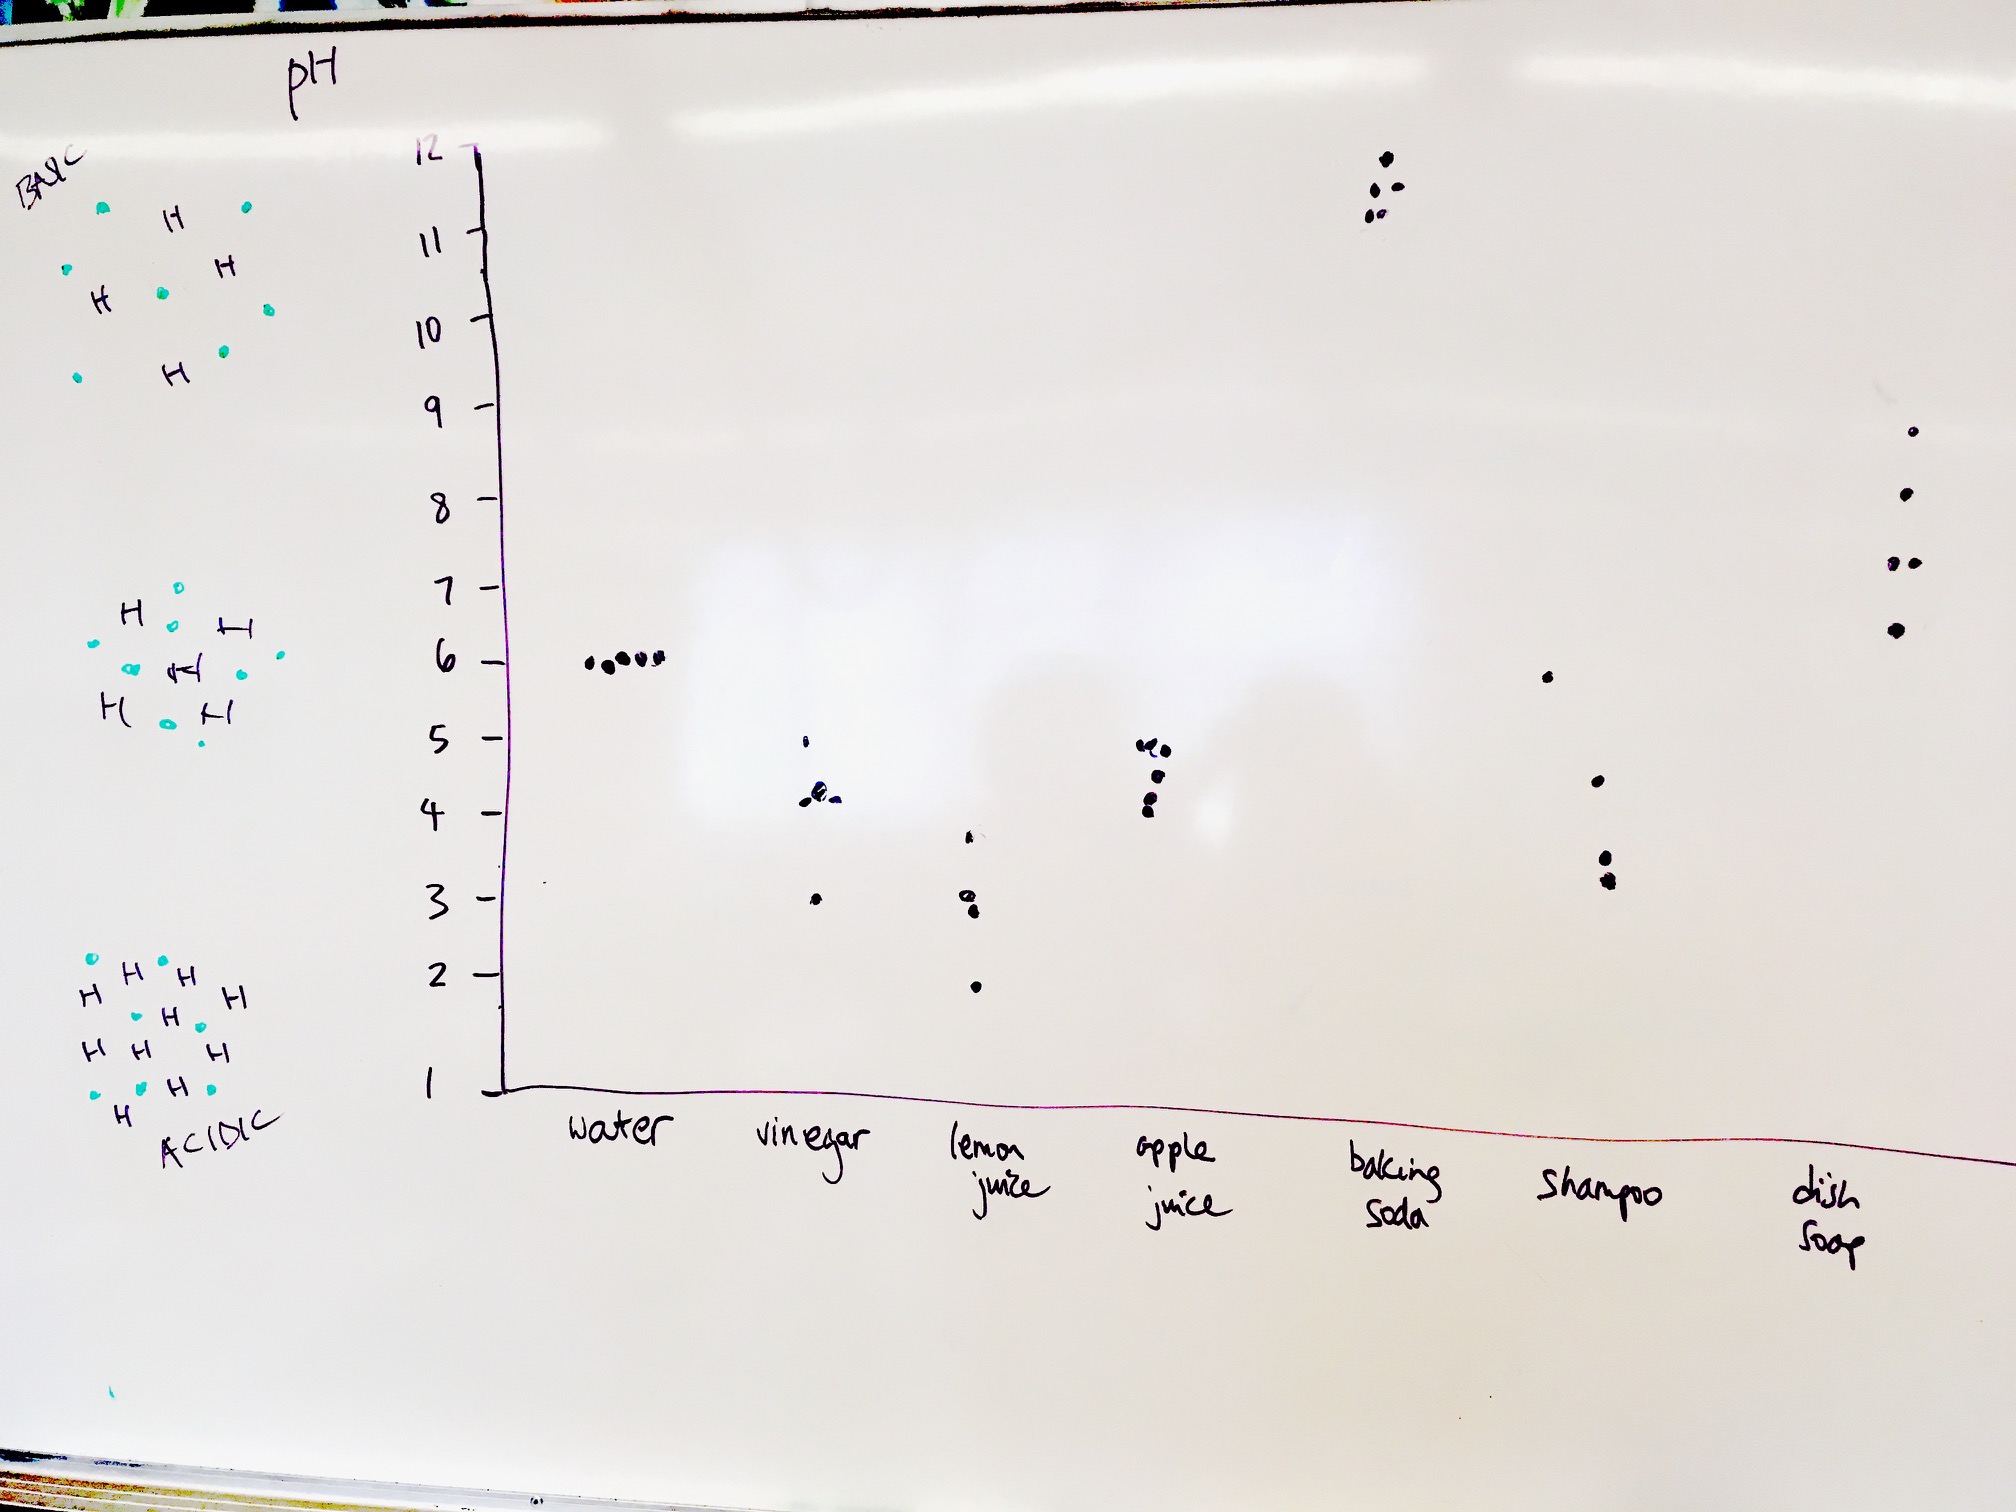 pH
BASIC
H
H
H
H
12
11
10
9
8
7
6
5
4
3
2
1
H
H
H
H
H
H H
H H
H
H H H
H
H
ACIDIC
water
vinegar
lemon
juice
apple
juice
baking
soda
shampoo
dish
soap